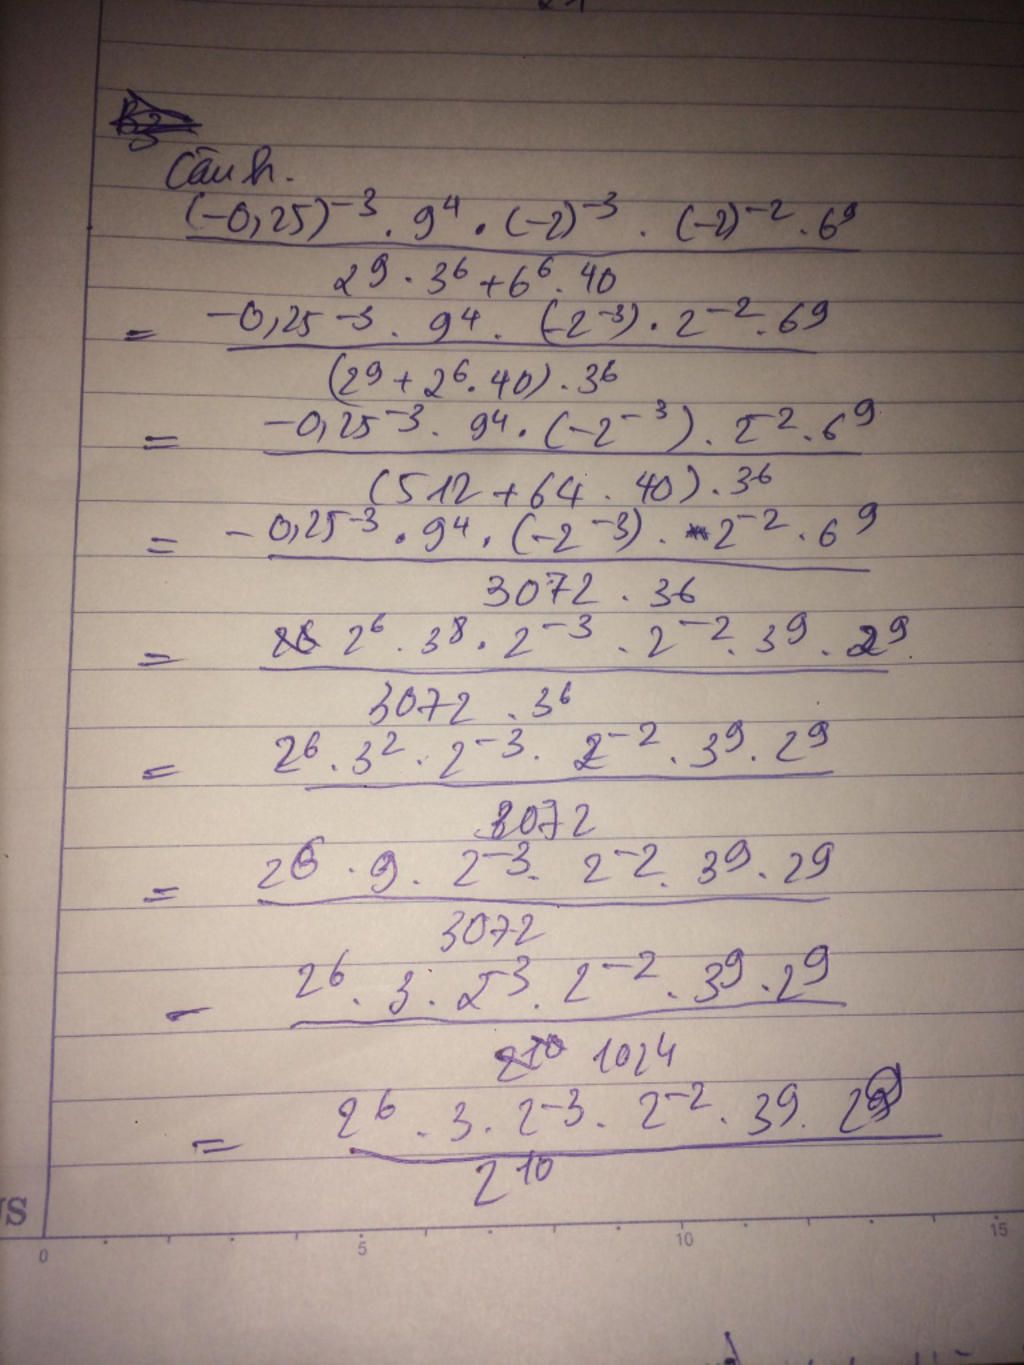 Câu h.
(-0,25)^-3 . 9^4 . (-2)^-3 . (-2)^-2 . 6^9
2^9 . 3^6 + 6^6 . 40
= -0,25^-3 . 9^4 . (-2^-3) . 2^-2 . 6^9
(2^9 + 2^6 . 40) . 3^6
= -0,25^-3 . 9^4 . (-2^-3) . 2^-2 . 6^9
(512 + 64 . 40) . 3^6
= -0,25^-3 . 9^4 . (-2^-3) . 2^-2 . 6^9
3072 . 36
= 2^6 . 3^8 . 2^-3 . 2^-2 . 3^9 . 2^9
3072 . 3^6
= 2^6 . 3^2 . 2^-3 . 2^-2 . 3^9 . 2^9
3072
= 2^6 . 9 . 2^-3 . 2^-2 . 3^9 . 2^9
3072
- 2^6 . 3 . 2^-3 . 2^-2 . 3^9 . 2^9
1024
= 2^6 . 3 . 2^-3 . 2^-2 . 3^9 . 2^9
2^10
0 5 10 15